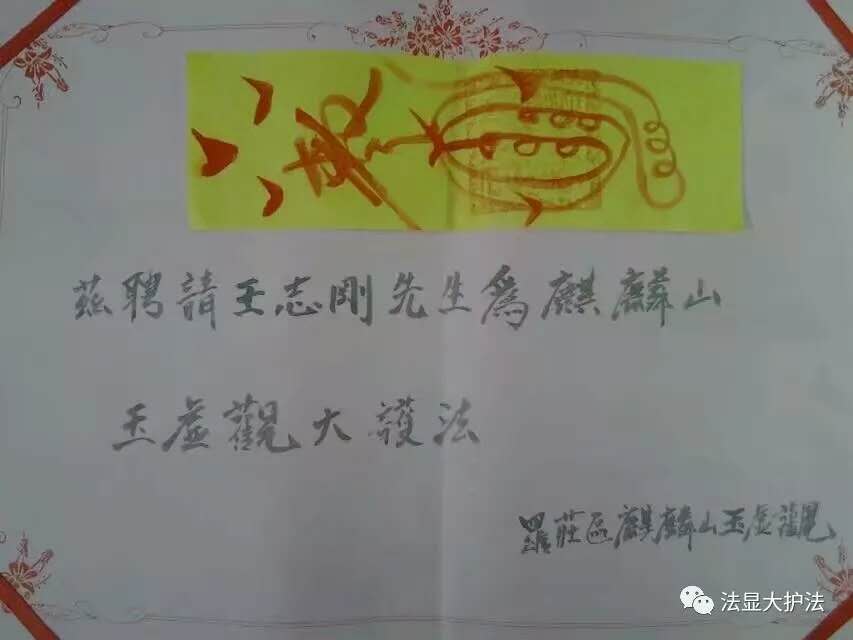 茲聘請王志剛先生爲麒麟山
玉虛觀大護法
羅莊區麒麟山玉虛觀
法显大护法